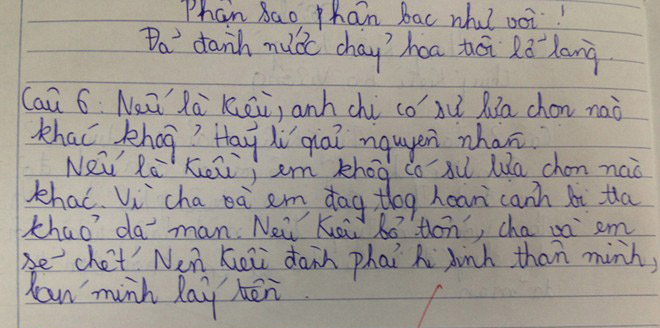 Phận sao phận bạc như vôi!
Đã đành nước chảy hoa trôi lỡ làng.
Câu 6: Nếu là Kiều, anh chị có sự lựa chọn nào
khác khôg? Hãy lí giải nguyên nhân.
Nếu là Kiều, em khôg có sự lựa chọn nào
khác. Vì cha và em đag trog hoàn cảnh bị tra
khảo dã man. Nếu Kiều bỏ trốn, cha và em
sẽ chết. Nên Kiều đành phải hi sinh thân mình,
bán mình lấy tiền.